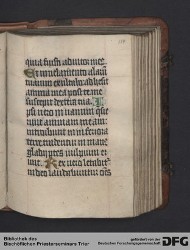 quia fuisti adiutor me
Et in velamento alarū
tuarum exultabo adhesit
anima mea post te me
suscepit dextera tua
psi vero in vanum que
sierunt animam meam
introibunt in inferiora
terre tradentur in manus
gladii partes vulpium e
runt Rex vero letabit
in deo laudabuntur om
Bibliothek des
Bischöflichen Priesterseminars Trier
gefördert von der
Deutschen Forschungsgemeinschaft
DFG